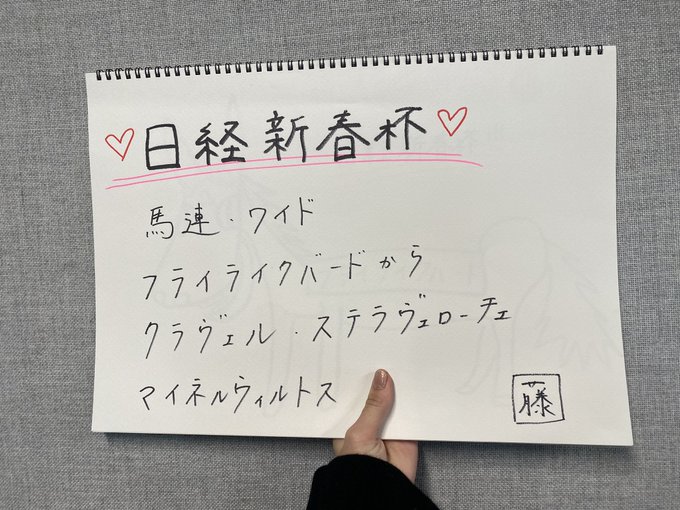 日経新春杯
馬連・ワイド
フライライクバードから
クラヴェル・ステラヴェローチェ
マイネルウィルトス
藤